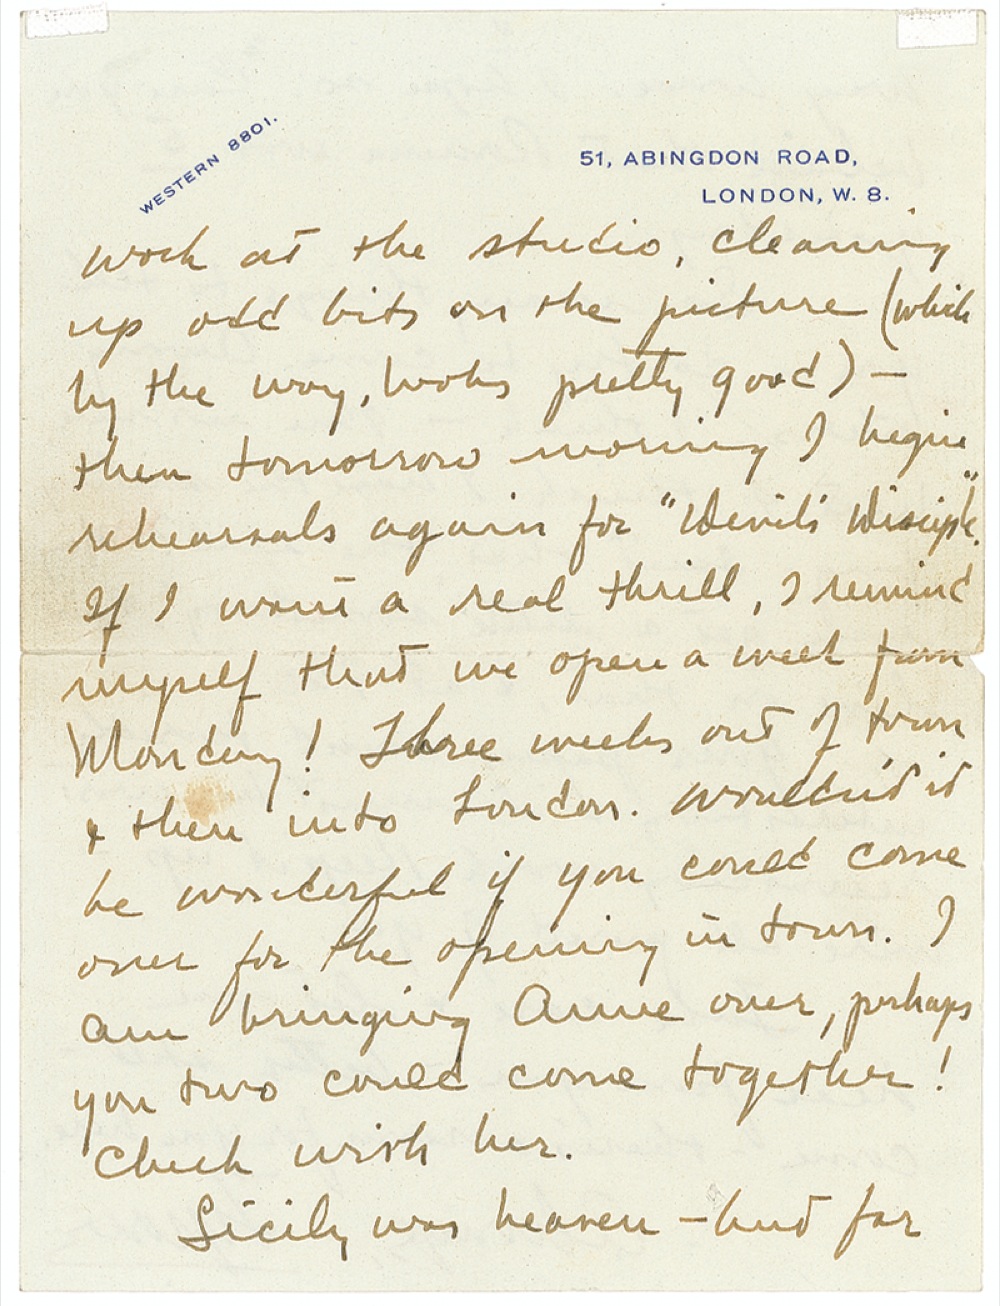 WESTERN 8801.
51, ABINGDON ROAD,
LONDON, W. 8.
work at the studio, cleaning
up odd bits on the picture (which
by the way, looks pretty good) —
then tomorrow morning I begin
rehearsals again for "Devil's Disciple."
If I want a real thrill, I remind
myself that we open a week from
Monday! Three weeks out of town
& then into London. Wouldn't it
be wonderful if you could come
over for the opening in town. I
am bringing Anne over, perhaps
you two could come together!
Check with her.
Sicily was heaven — but far